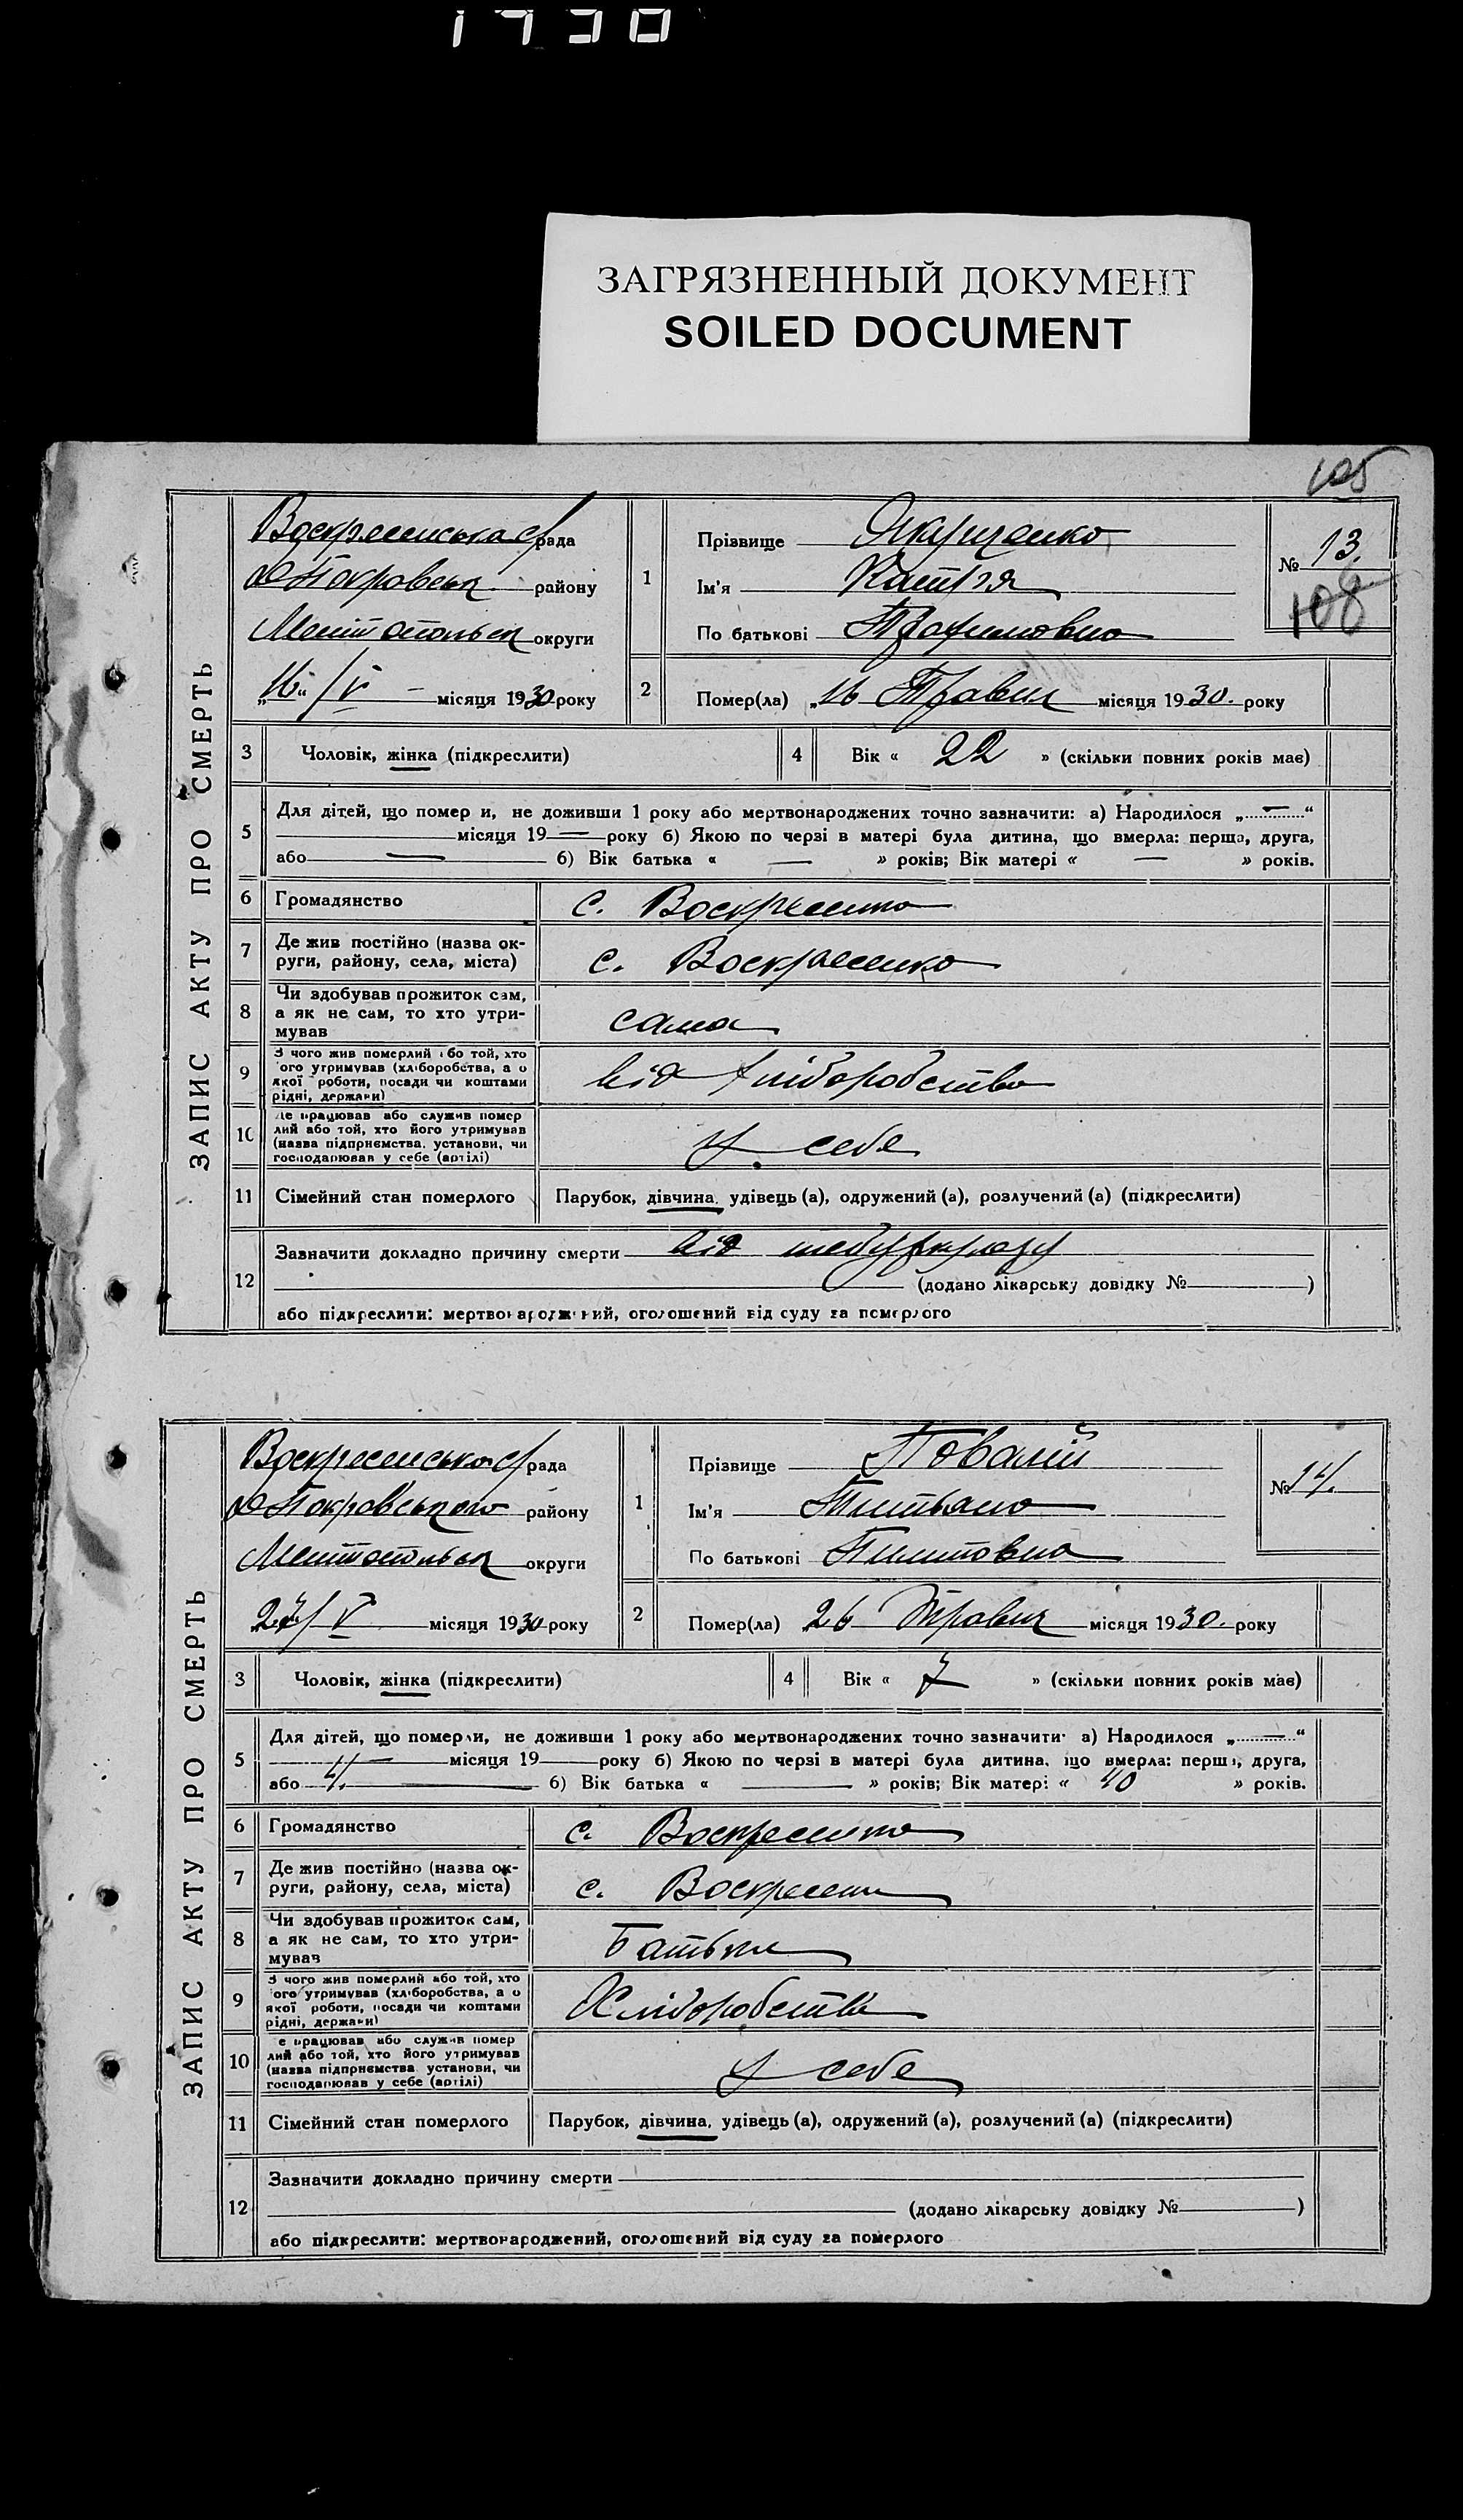 1930
ЗАГРЯЗНЕННЫЙ ДОКУМЕНТ
SOILED DOCUMENT
105
ЗАПИС АКТУ ПРО СМЕРТЬ
Воскресенська с/рада
Покровськ району
округи
16/V місяця 1930 року
1
Прізвище
Ім'я Катря
По батькові Трофимовна
№ 13
108
2
Помер(ла) „16 Травня місяця 1930. року
3 Чоловік, жінка (підкреслити)
4 Вік « 22 » (скільки повних років має)
5 Для дітей, що помер и, не доживши 1 року або мертвонароджених точно зазначити: а) Народилося „ — “
місяця 19 — року б) Якою по черзі в матері була дитина, що вмерла: перша, друга,
або — 6) Вік батька « — » років; Вік матері « — » років.
6 Громадянство с.
7 Де жив постійно (назва ок-
руги, району, села, міста) с. Воскресенка
8 Чи здобував прожиток сам,
а як не сам, то хто утри-
мував сама
9 З чого жив померлий або той, хто
ого утримував (хліборобства, а о
якої роботи, посади чи коштами
рідні, держави) від хліборобства
10 де працював або служив помер
лий або той, хто його утримував
(назва підприємства, установи, чи
господарював у себе (артілі) У себе
11 Сімейний стан померлого Парубок, дівчина, удівець (а), одружений (а), розлучений (а) (підкреслити)
12 Зазначити докладно причину смерти від туберкульозу
(додано лікарську довідку № )
або підкреслити: мертвонароджений, оголошений від суду за померлого
ЗАПИС АКТУ ПРО СМЕРТЬ
Воскресенська с/рада
Покровського району
округи
27/V місяця 1930 року
1
Прізвище Повалій
Ім'я Титьяна
По батькові Пилиповна
№ 14.
2
Помер(ла) 26 Травня місяця 1930. року
3 Чоловік, жінка (підкреслити)
4 Вік « 7 » (скільки повних років має)
5 Для дітей, що померли, не доживши 1 року або мертвонароджених точно зазначити: а) Народилося „ — “
місяця 19 року б) Якою по черзі в матері була дитина, що вмерла: перша, друга,
або 4. 6) Вік батька « — » років; Вік матері « 40 » років.
6 Громадянство с.
7 Де жив постійно (назва ок-
руги, району, села, міста) с.
8 Чи здобував прожиток сам,
а як не сам, то хто утри-
мував Батьки
9 З чого жив померлий або той, хто
ого утримував (хліборобства, а о
якої роботи, посади чи коштами
рідні, держави) Хліборобства
10 е працював або служив помер
лий або той, хто його утримував
(назва підприємства, установи, чи
господарював у себе (артілі) У себе
11 Сімейний стан померлого Парубок, дівчина, удівець (а), одружений (а), розлучений (а) (підкреслити)
12 Зазначити докладно причину смерти
(додано лікарську довідку № )
або підкреслити: мертвонароджений, оголошений від суду за померлого